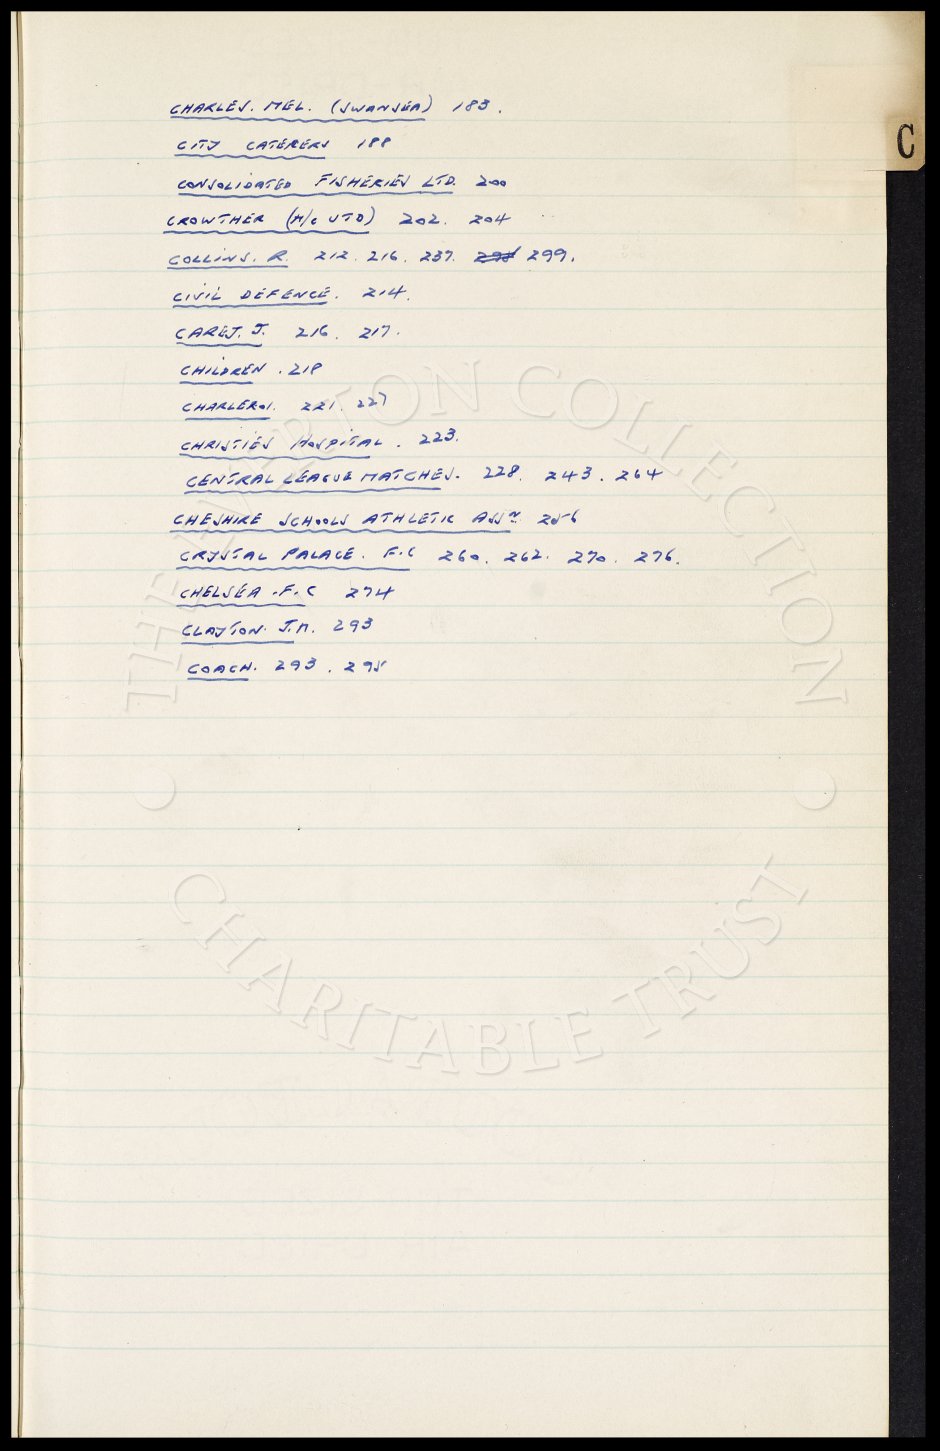 C
CHARLES. MEL. (SWANSEA) 183.
CITY CATERERS 188
CONSOLIDATED FISHERIES LTD. 200
CROWTHER (M/C UTD) 202. 204
COLLINS. R. 212. 216. 237. 298 299.
CIVIL DEFENCE. 214.
CAREY. J. 216. 217.
CHILDREN. 218
CHARLEROI. 221. 227
CHRISTIES HOSPITAL. 223.
CENTRAL LEAGUE MATCHES. 228. 243. 264
CHESHIRE SCHOOLS ATHLETIC ASSN. 256
CRYSTAL PALACE. F.C 260. 262. 270. 276.
CHELSEA. F.C 274
CLAYTON. J.M. 293
COACH. 293. 295
THE EVERTON COLLECTION
CHARITABLE TRUST